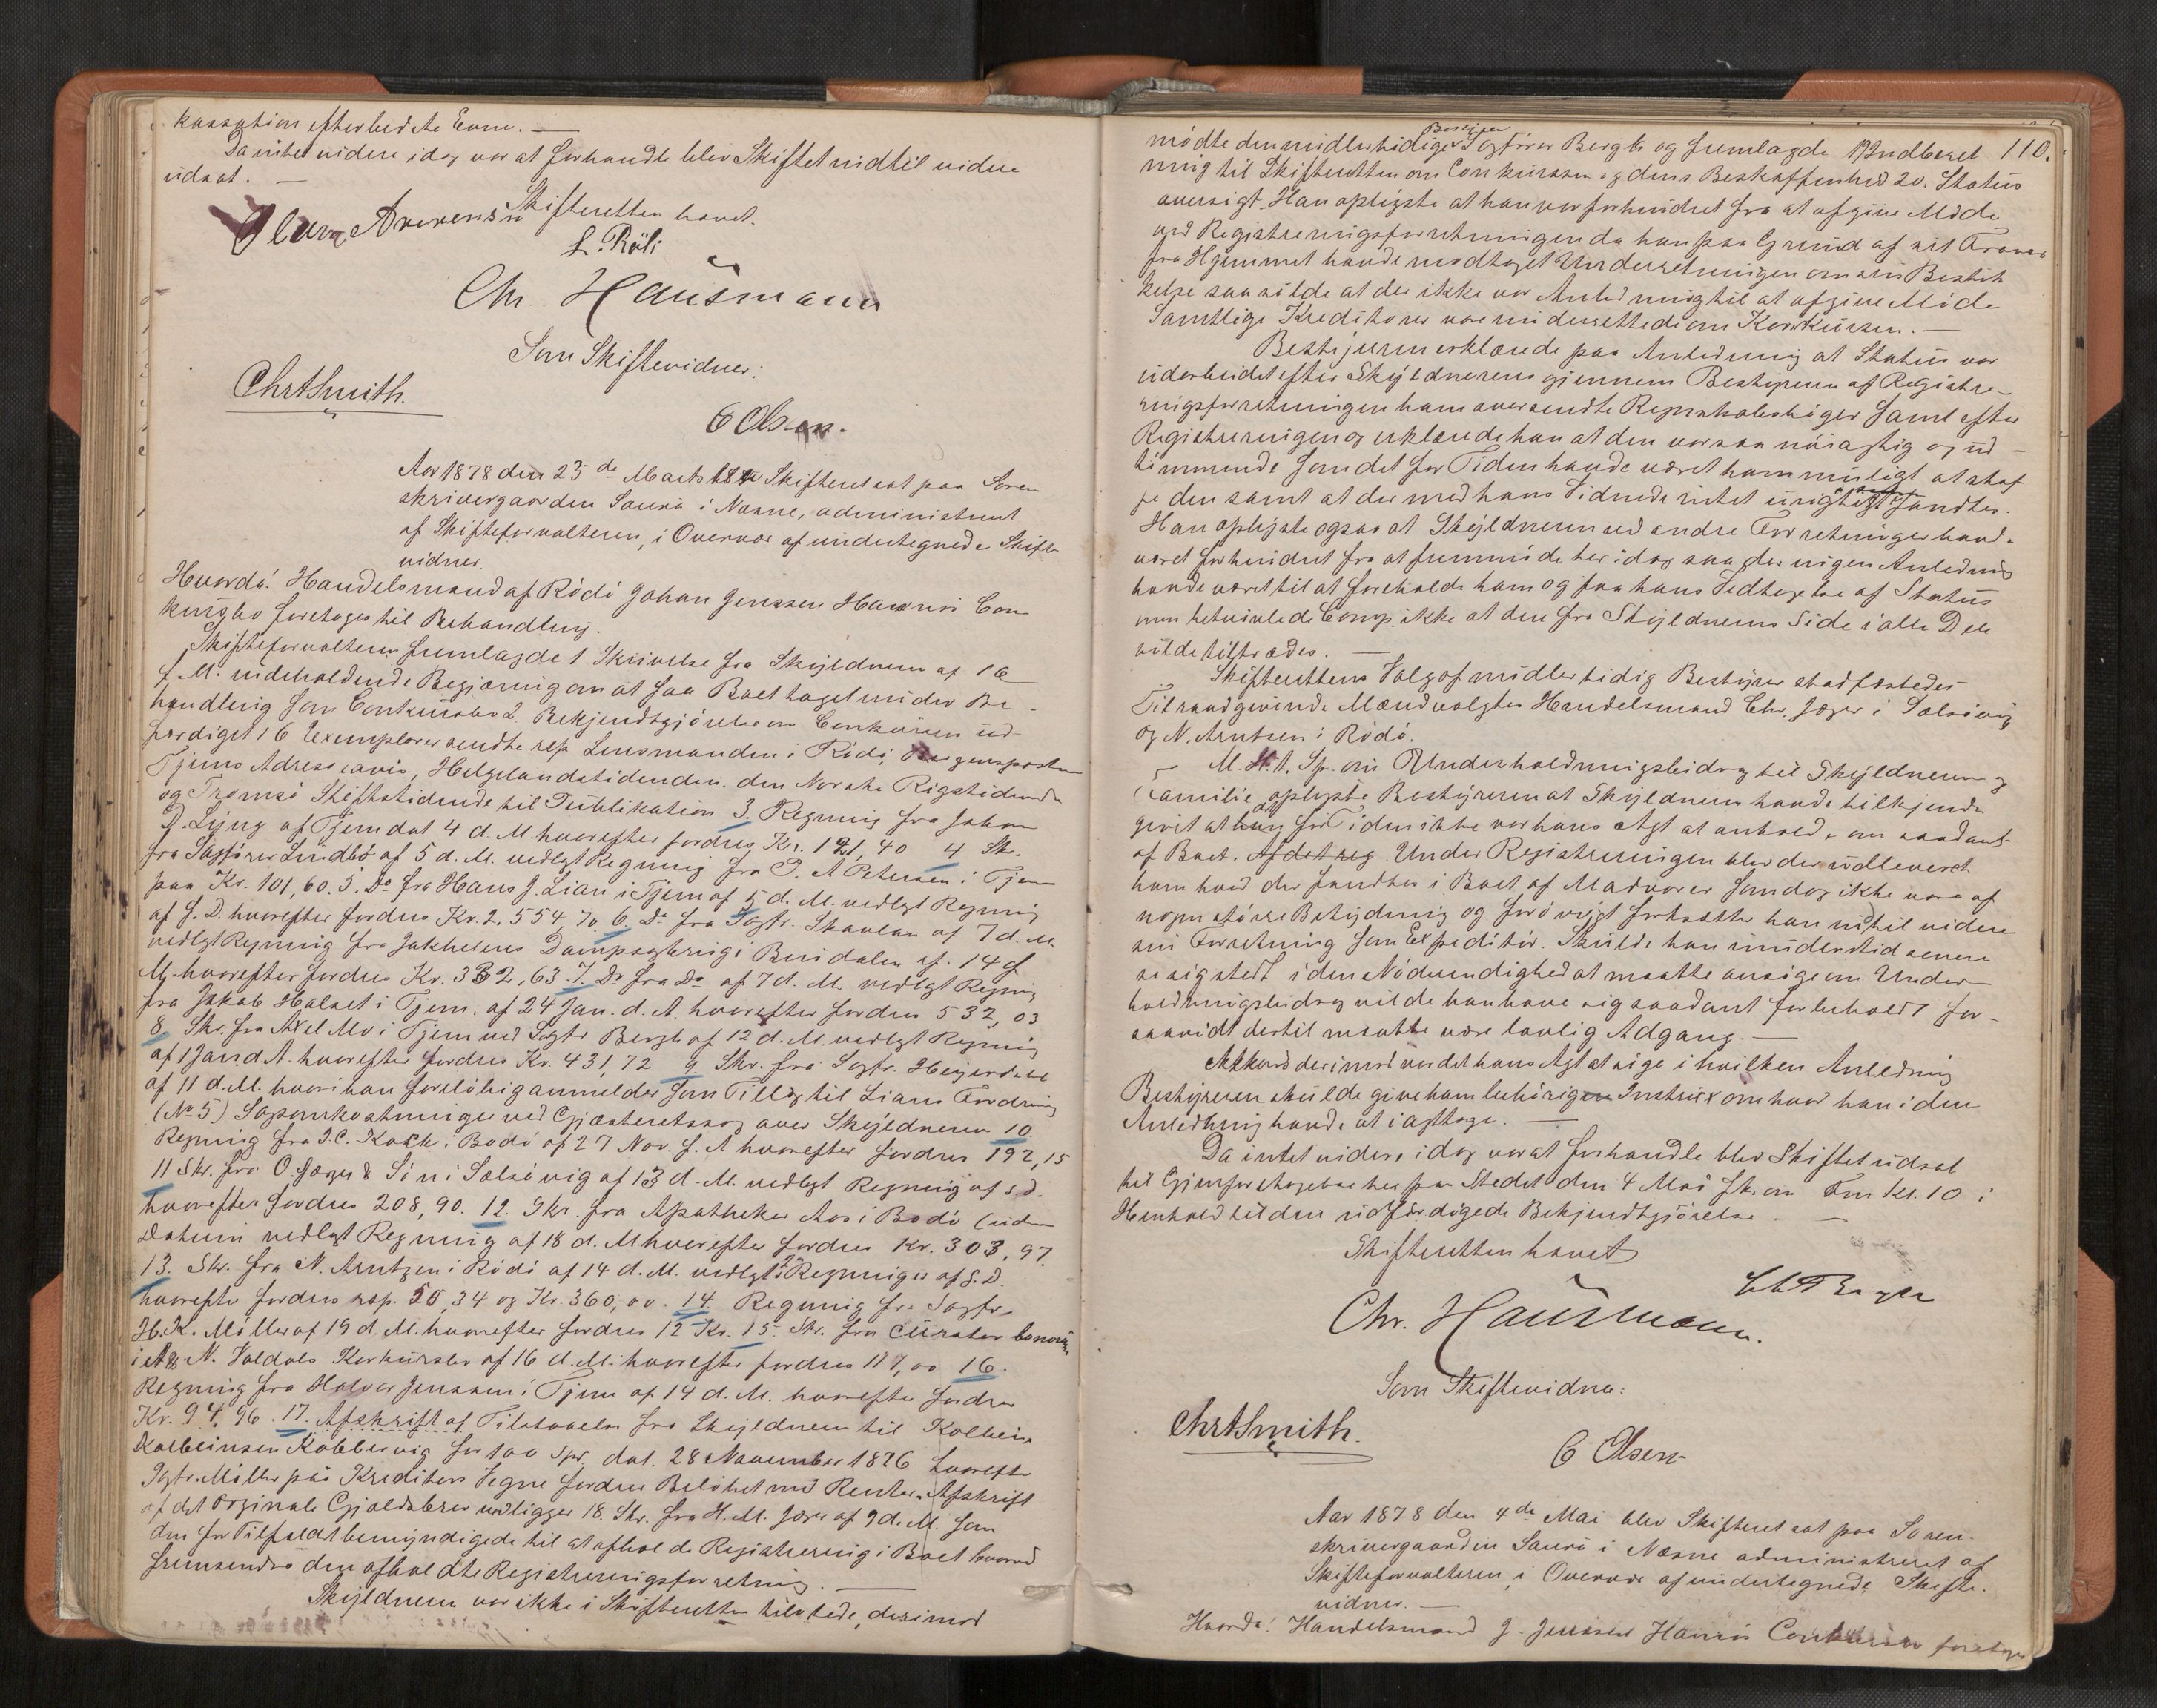 kassation efterbedste Evne. —
Da intet videre idag var at forhandle blev Skiftet indtil videre
udsat. —
Skifteretten hævet.
Oluv Arversen
L. Röli
Chr Hausmann
Som Skiftevidner:
Chrt Smith.
C Olsen.
Aar 1878 den 23de Marts blev Skifteret sat paa Soren
skrivergaarden Saura i Nesne, administreret
af Skifteforvalteren, i Overvær af undertegnede Skifte
vidner.
Hvorda: Handelsmand af Rödö Johan Jenssen Havnøs Con
kursbo foretoges til Behandling.
Skifteforvalteren fremlagde 1 Skrivelse fra Skyldneren af 16
f. M. indeholdende Begjæring om at faa Boet taget under Be-
handling som Conkursbo 2. Bekjendtgjörelse om Conkursen ud-
færdiget i 6 Exemplarer sendte resp Lensmanden i Rödö, Bergensposten
Tjems Adresseavis, Helgelandstidenden, den Norske Rigstidende
og Tromsö Stiftstidende til Publikation 3. Regning fra Johan
D. Ljung af Tjem dat 4 d. M. hvorefter fordres Kr. 121,40 4 Skr.
fra Sagförer Lindbö af 5 d. M. vedlagt Regning fra P. A Petersen i Tjem
paa Kr. 101,60. 5. Do fra Hans J. Lian i Tjem af 5 d. M. vedlagt Regning
af S. D. hvorefter fordres Kr. 2,554,70. 6. Do fra Sagfr. Skavlan af 7 d. M.
vedlagt Regning fra Jakhelens Dampsagbrug i Bindalen af 14 f.
M. hvorefter fordres Kr. 332,63. 7. Do fra Do af 7 d. M. vedlagt Regning
fra Jakob Halset i Tjem. af 24 Jan. d. A. hvorefter fordres 532,03
8. Skr. fra Axel Mo i Tjem ved Sagfr Bergh af 12 d. M. vedlagt Regning
af 1 Jan d. A. hvorefter fordres Kr. 431,72 9 Skr. fra Sagfr. Heyerdahl
af 11 d. M. hvori han foreløbig anmelder som Tillæg til Lians Fordring
(No 5) Sagsomkostninger ved Gjæsteretssag over Skyldneren 10.
Regning fra J. C. Koch i Bodö af 27 Nov. f. A hvorefter fordres 192,15
11 Skr. fra O. Jæger & Sön i Selsövig af 13 d. M. vedlagt Regning af s. d.
hvorefter fordres 208,90. 12. Skr. fra Apotheker Aas i Bodö (uden
Datum vedlagt Regning af 18 d. M hvorefter fordres Kr. 303,97.
13. Skr. fra N. Arntzen i Rödö af 14 d. M. vedlagt 2 Regninger af S. D.
hvorefter fordres resp. 50,34 og Kr. 360,00. 14. Regning fra Sagfr.
H. K. Möller af 19 d. M. hvorefter fordres 12 Kr. 15. Skr. fra curator bonorum
i A & N. Valdals Konkursbo af 16 d. M. hvorefter fordres 117,00 16.
Regning fra Halvor Jenssen i Tjem af 14 d. M. hvorefter fordres
Kr. 94,96. 17. Afskrift af Tilstaaelse fra Skyldneren til Kolbein
Kolbeinsen Kobbervig for 100 Spd, dat. 28 November 1876 hvorefter
Sagfr. Möller paa Kreditors Vegne fordrer Belöbet med Renter. Afskrift
af det orginale Gjældsbrev vedligger 18. Skr. fra H. M. Jæger af 9 d. M. som
den for Tilfældet bemyndigede til at afholde Registrering i Boet hvorved
fremsendes den afholdte Registreringsforretning. —
Skyldneren var ikke i Skifteretten tilstede, derimod
110.
mödte den midlertidige Bestyrer Sagförer Bergh og fremlagde 19 Indberet
ning til Skifteretten om Conkursen og dens Beskaffenhed 20. Status
oversigt. Han oplyste at han var forhindret fra at afgive Möde
ved Registreringsforretningen da han paa Grund af sit Fravær
fra Hjemmet havde modtaget Underretningen om sin Beskik
kelse saa silde at der ikke var Anledning til at afgive Möde
Samtlige Kreditorer vare underrettede om Konkursen. —
Bestyreren erklærede paa Anledning at Status var
udarbeidet efter Skyldnerens gjennem Bestyreren af Registre-
ringsforretningen ham oversendte Regnskabsböger samt efter
Registreringen og erklærede han at den var saa nöiagtig og ud-
tömmende som det for Tiden havde været ham muligt at skaf
fe den samt at der med hans Vidende intet urigtigt fandtes.
Han oplyste ogsaa at Skyldneren ved andre Forretninger havde
været forhindret fra at fremmöde her idag saa der ingen Anledning
havde været til at foreholde ham og faa hans Vedtagelse af Status
men betvivlede Comp. ikke at den fra Skyldnerens Side i alle Dele
vilde tiltrædes. —
Skifterettens Valg af midlertidig Bestyrer stadfæstedes
Til raadgivende Mænd valgtes Handelsmand Chr. Jæger i Selsövig
og N. Arntsen i Rödö.
M. H. t. Sp. om Underholdningsbidrag til Skyldneren og
Familie oplyste Bestyreren at Skyldneren havde tilkjende
givet at han for Tiden ikke var hans Agt at anholde om saadant
af Boet. Af det reg. Under Registreringen blev der udleveret
ham hvad der fandtes i Boet af Madvarer som dog ikke vare af
nogen större Betydning og forövrigt fortsætter han indtil videre
sin Forretning som Expeditör. Skulde han imidlertid senere
se sig stedt i den Nödvendighed at maatte ansöge om Under-
holdningsbidrag vilde han have sig saadant forbeholdt for-
saavidt dertil maatte være lovlig Adgang. —
Akkord derimod var det hans Agt at söge i hvilken Anledning
Bestyreren skulde give ham behörigen Instrux om hvad han i den
Anledning havde at iagttage. —
Da intet videre idag var at forhandle blev Skiftet udsat
til Gjenforetagelse her paa Stedet den 4 Mai fk. om Fm Kl. 10 i
Henhold til den udfærdigede Bekjendtgjörelse. —
Skifteretten hævet
Chr. Hausmann.
Som Skiftevidner:
Chrt Smith.
C Olsen
Aar 1878 den 4de Mai blev Skifteret sat paa Soren-
skrivergaarden Saura i Nesne administreret af
Skifteforvalteren, i Overvær af undertegnede Skifte-
vidner. —
Hvorda: Handelsmand J. Jenssen Havnøs Conkursbo foretoges